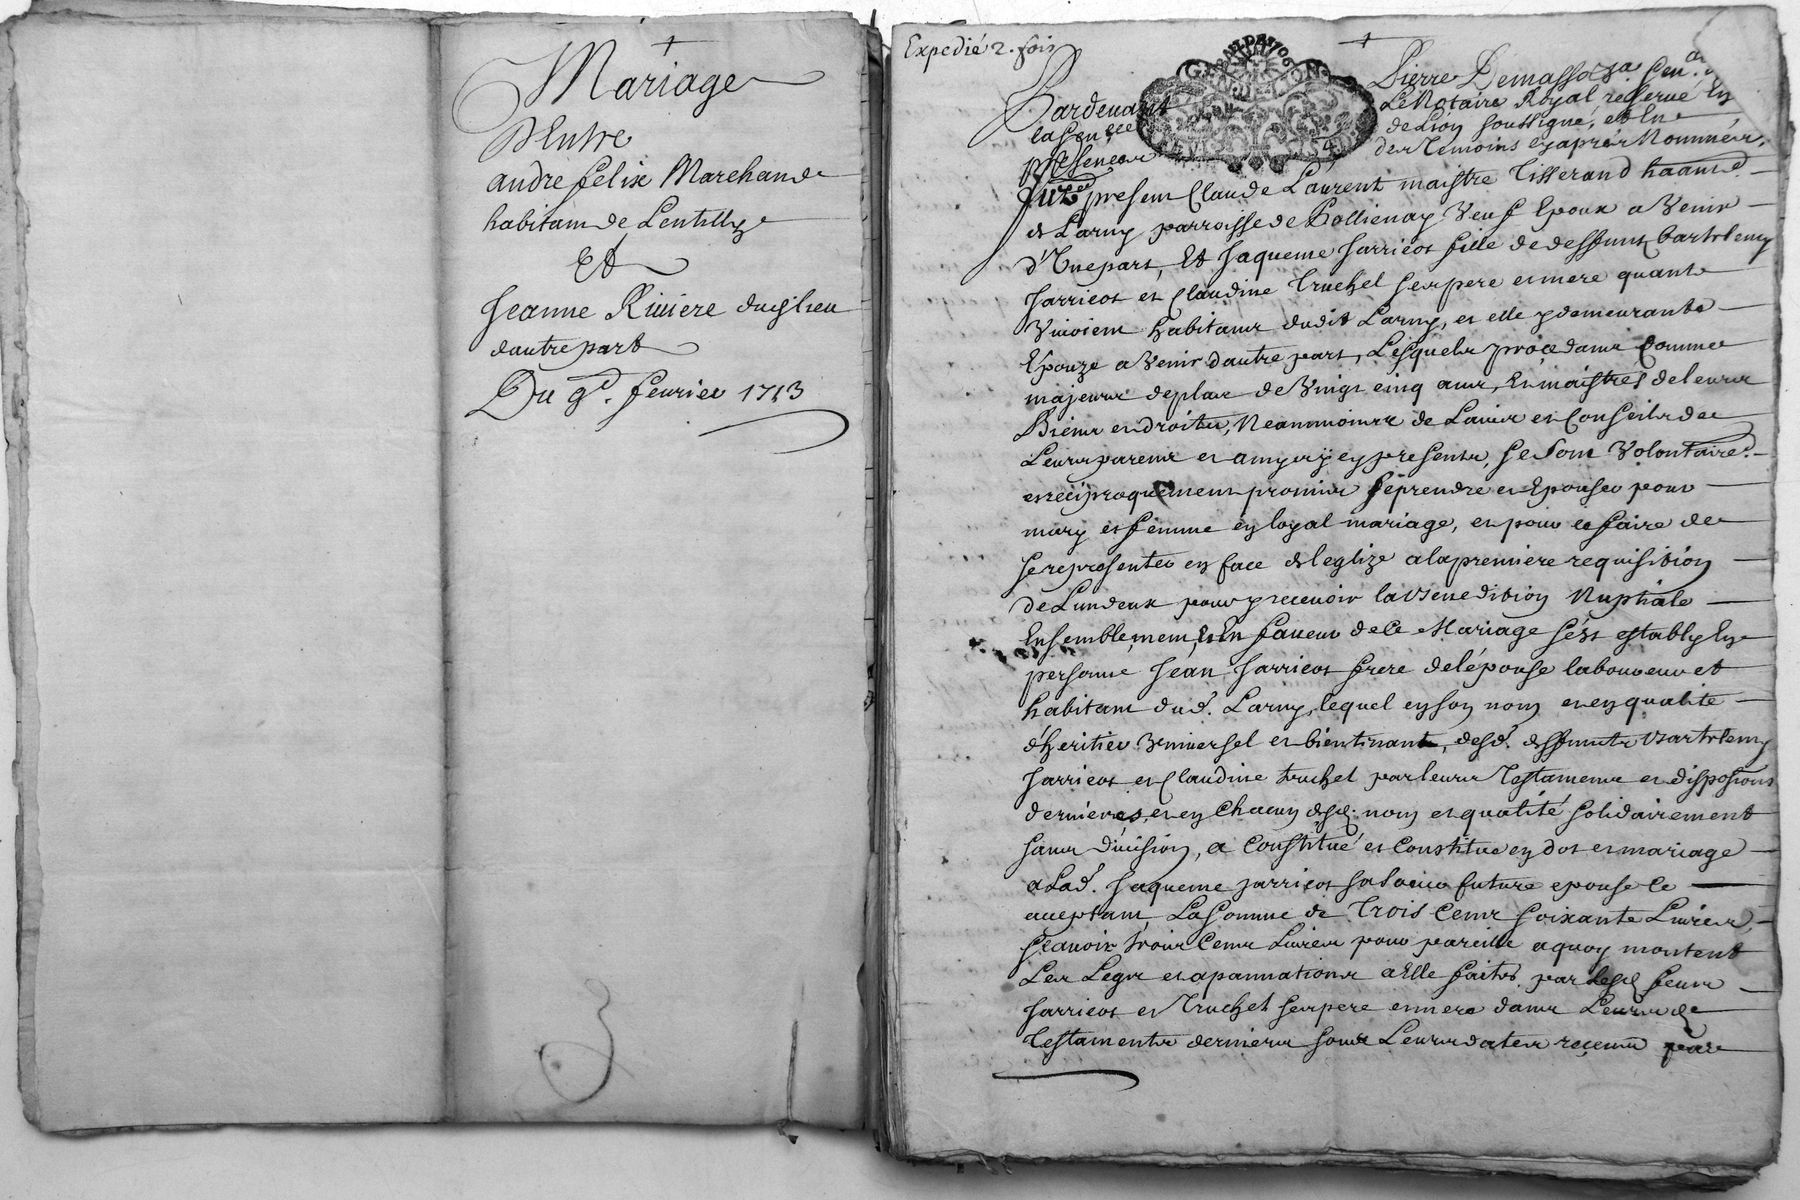 Mariage
D'Entre
andre felix Marchand
habitant de Lentilly
Et
Jeanne Riviere dudit lieu
dautre part
Du 9e. fevrier 1713
Expedié 2. fois
GN. DE LION
Pardevant Pierre Demasso
Le Notaire Royal reserve En
la senéée de Lion soussigné, et En
presence des Temoins cy apres Nommés,
fuz present Claude Laurent maistre Tisserand haant
de Larny parroisse de Pollienay Veuf Epoux a Venir
d'Une part, Et Jaqueme Jarricot fille de deffunt Bartelemy
Jarricot et Claudine Truchet ses pere et mere quant
Vivoient habitans dudit Larny, et elle y demeurante
Epouze a Venir dautre part, Lesquels procedans Comme
majeurs de plus de Vingt cinq ans, Et maistres de leurs
Biens et droits, Neanmoins de Lavis et Conseils de
Leurs parens et amys icy presents, se sont Volontaire.
et reciproquement promis se prendre et Epouser pour
mary et femme en loyal mariage, et pour ce faire de
se representer en face de leglize a la premiere requisition
de Lun deux pour y recevoir la Benediction Nuptiale
Ensemblement, Et En faveur de Ce Mariage s'est estably En
personne Jean Jarricot frere de lépouse laboureur et
habitant dud. Larny, lequel en son nom et en qualité
d'heritier Vniversel et bientenant, desd. deffunts Bartelemy
Jarricot et Claudine truchet par leurs Testamens et disposions
dernieres, et en Chacun desd. nom et qualité solidairement
sans division, a Constitué et Constitue en dot et mariage
a Lad. Jaqueme Jarricot sa soeur future epouse Ce
acceptant, La somme de Trois Cens soixante Livres,
scavoir trois Cens Livres pour pareille a quoy montent
Les Legs et apannations a Elle faites par Lesd feuz
Jarricot et Truchet ses pere et mere dans Leurs de
Testaments derniers sous Leurs dates receus par